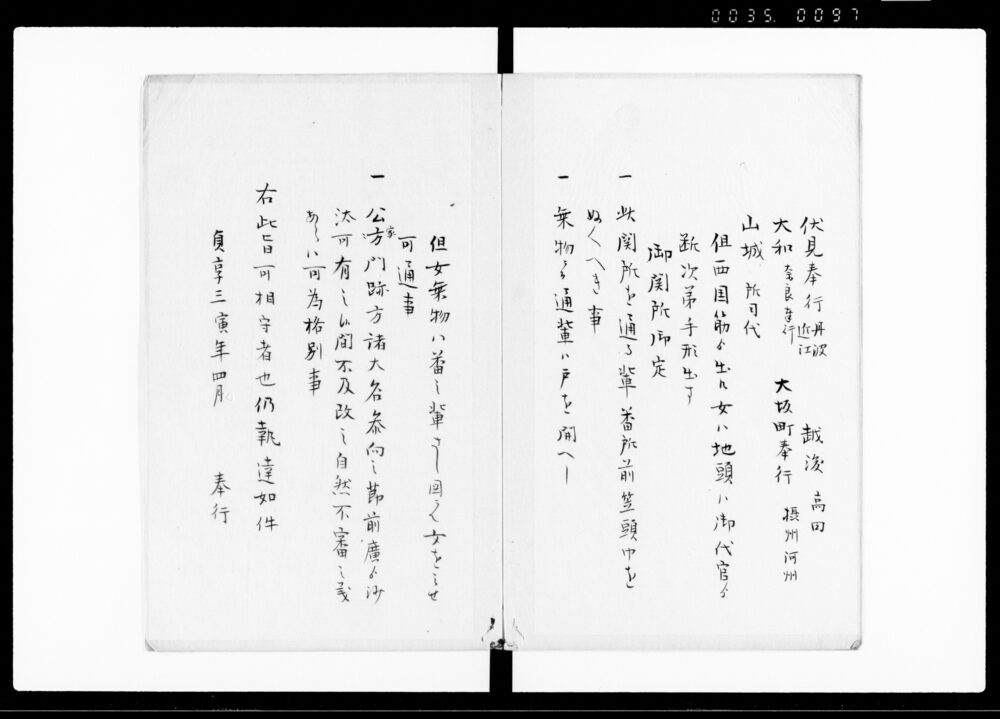 0035. 0097
伏見奉行 丹波 近江 越後 高田
大和 奈良奉行 大坂町奉行 摂州 河州
山城 所司代
但西国筋ゟ出ル女ハ地頭ハ御代官ゟ
断次第手形出す
御関所御定
一 此関所を通る輩番所前笠頭巾を
ぬくへき事
一 乗物ニ而通輩ハ戸を開へし
但女乗物ハ番之輩さし図ニ而女をミせ
可通事
一 公家方門跡方諸大名参向之節前廣ゟ沙
汰可有之候間不及改之自然不審之義
あらハ可為格別事
右此旨可相守者也仍執達如件
貞享三寅年四月 奉行